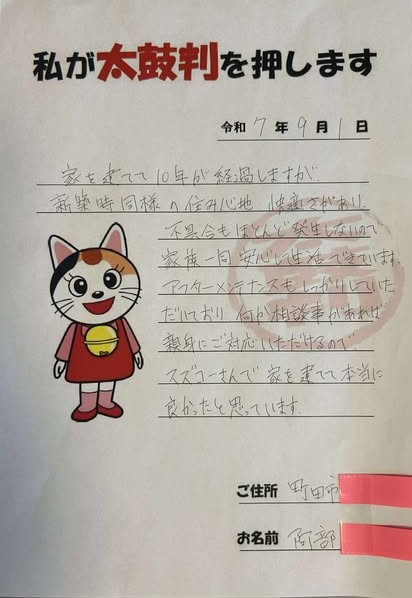 私が太鼓判を押します
令和 7 年 9 月 1 日
家を建てて10年が経過しますが、
新築時同様の住み心地、快適さがあり、
不具合もほとんど発生しないので
家族一同安心し生活できています。
アフターメンテナンスもしっかりしていた
だいており、何か相談事があれば
親身にご対応いただけるので
スズコーさんで家を建てて本当に
良かったと思っています。
ご住所 町田市
お名前 阿部